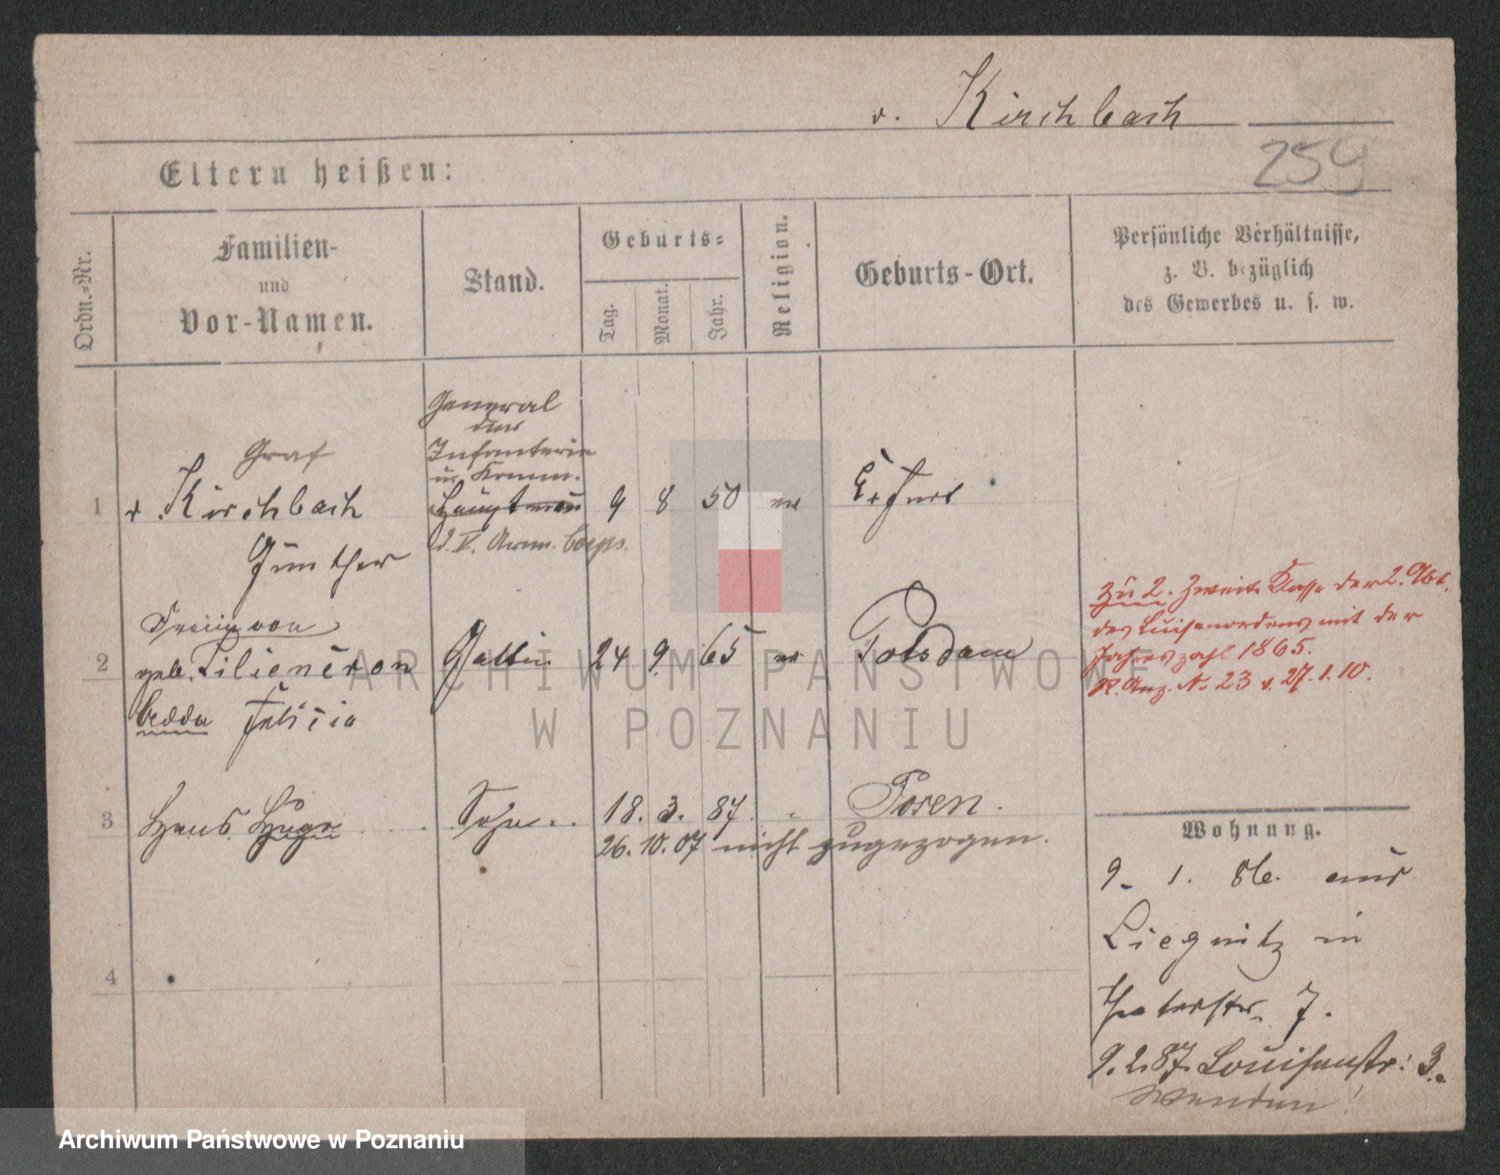 v. Kirchbach
259
Eltern heißen:
Ordn.-Nr.
Familien-
und
Vor-Namen.
Stand.
Geburts-
Tag.
Monat.
Jahr.
Religion.
Geburts-Ort.
Persönliche Verhältnisse,
z. B. bezüglich
des Gewerbes u. s. w.
1
Graf
v. Kirchbach
Günther
General
der
Infanterie
u. Komm.
Hauptmann
d. V. Arm. Corps.
9 8 50 ev
Erfurt
2
Freiin von
geb. Liliencron
Hedda Felicia
Gattin
24 9. 65 ev
Potsdam
Zu 2. Zweite Klasse der 2. Abt.
des Luisenordens mit der
Jahreszahl 1865.
R. Anz. No 23 v. 27.1.10.
3
Hans Hugo
Sohn
18. 3. 87. "
Posen.
26. 10. 07 nicht zugezogen.
Wohnung.
9. 1. 86. aus
Liegnitz in
Theaterstr. 7.
9.2.87. Louisenstr: 3.
Wenden!
4
ARCHIWUM PAŃSTWOWE
W POZNANIU
Archiwum Państwowe w Poznaniu